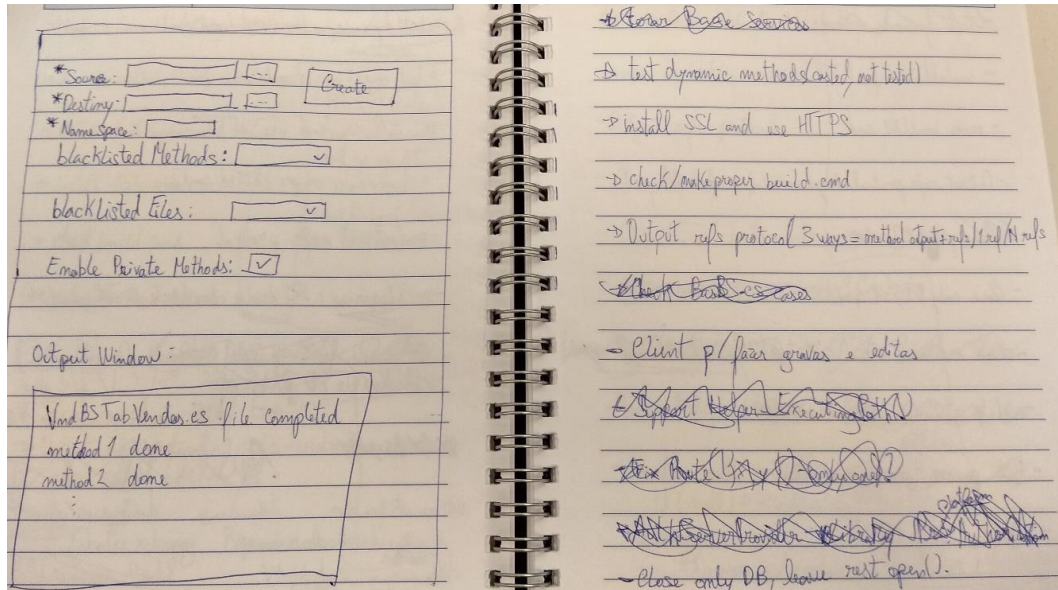 *Source: ... Create
*Destiny: ...
*Name Space:
blacklisted Methods:
blacklisted Files:
Enable Private Methods:
Output Window:
VndBSTabVendas.cs file completed
method 1 done
method 2 done
:
Base Services
→ test dynamic methods (casted, not tested)
→ install SSL and use HTTPS
→ check/make proper build.cmd
→ Output refs protocol 3 ways = method output+refs/1 ref/N refs
Check cases
- Client p/ fazer gravas e editas
Support Helper Executing Path
Library
platform
- Close only DB, leave rest open().